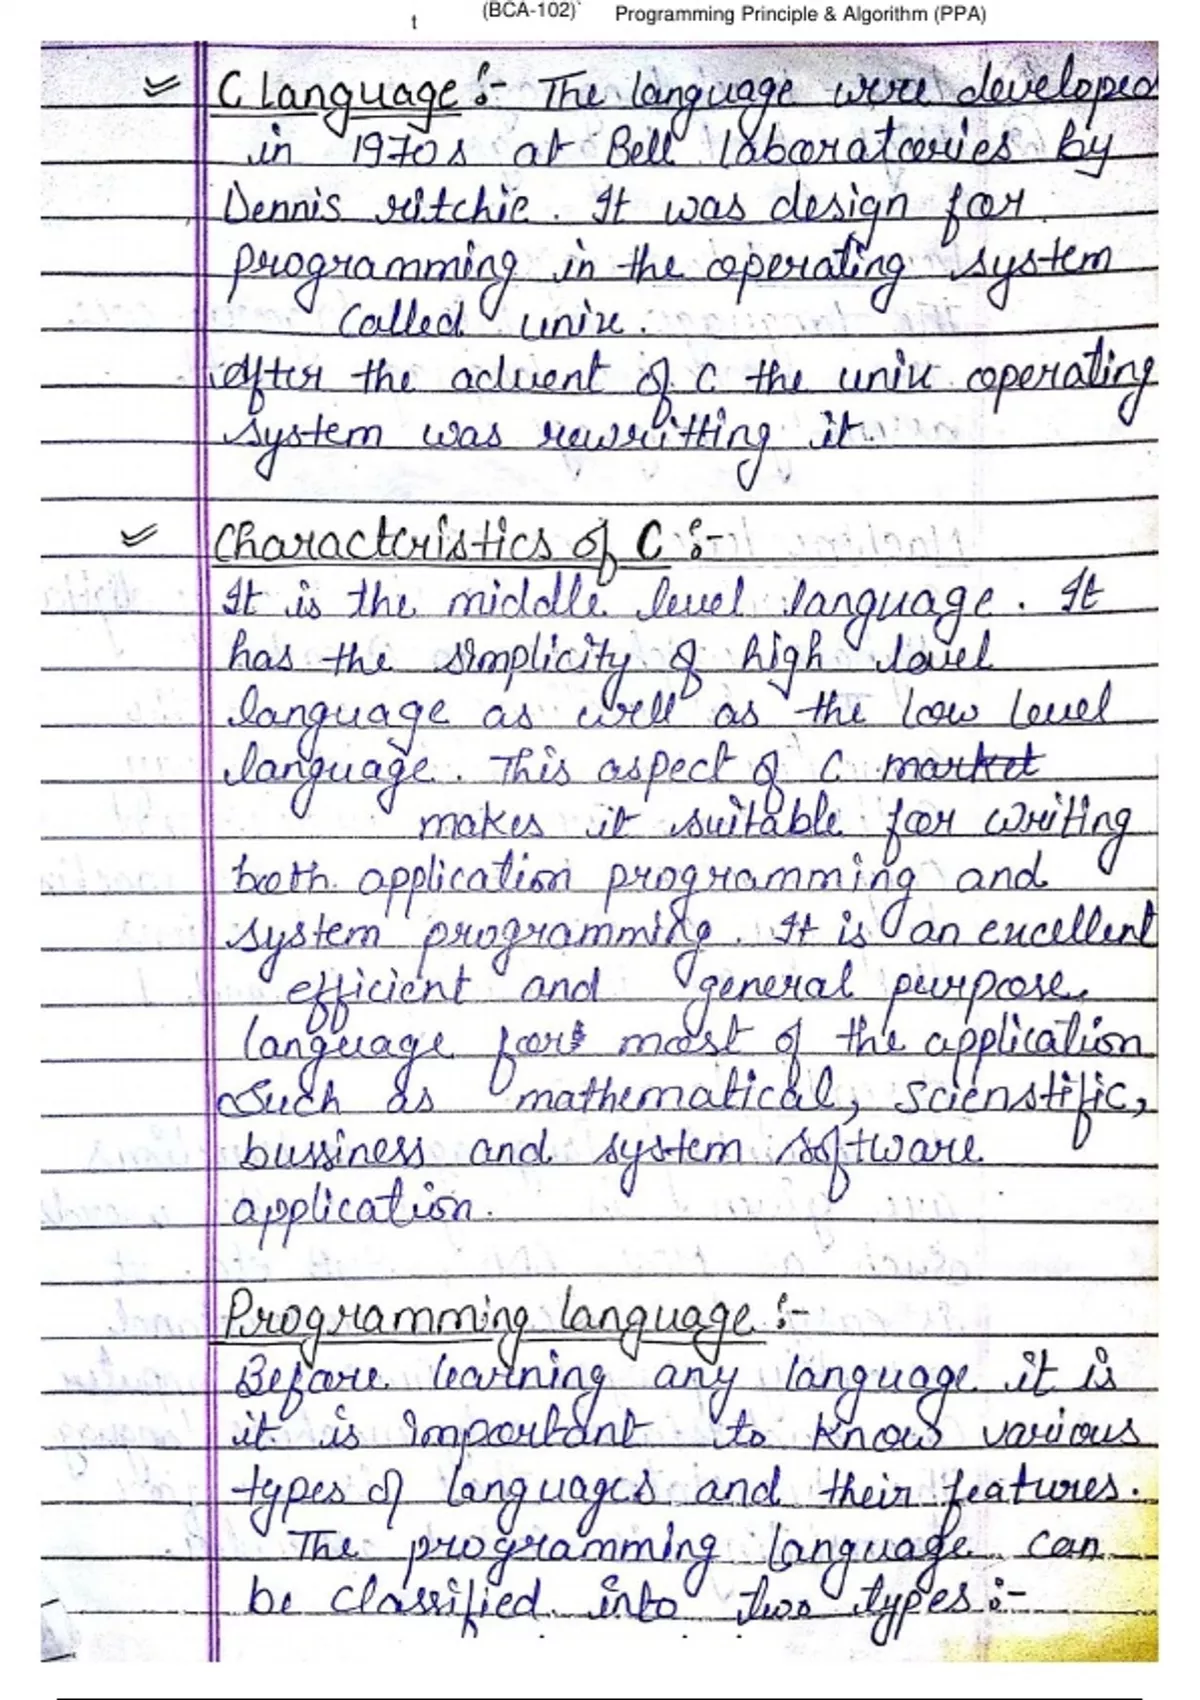 (BCA-102)` Programming Principle & Algorithm (PPA)
t
C language :- The language were developed
in 1970s at Bell laboratories by
Dennis ritchie. It was design for
programming in the operating system
called unix.
After the advent of C the unix operating
system was rewritting it.
Characteristics of C :-
It is the middle level language. It
has the simplicity of high level
language as well as the low level
language. This aspect of C market
makes it suitable for writing
both application programming and
system programming. It is an excellent
efficient and general purpose
language for most of the application
Such as mathematical, scienstific,
bussiness and system software
application.
Programming language :-
Before learning any language it is
it is important to know various
types of languages and their features.
The programming language can
be classified into two types :-